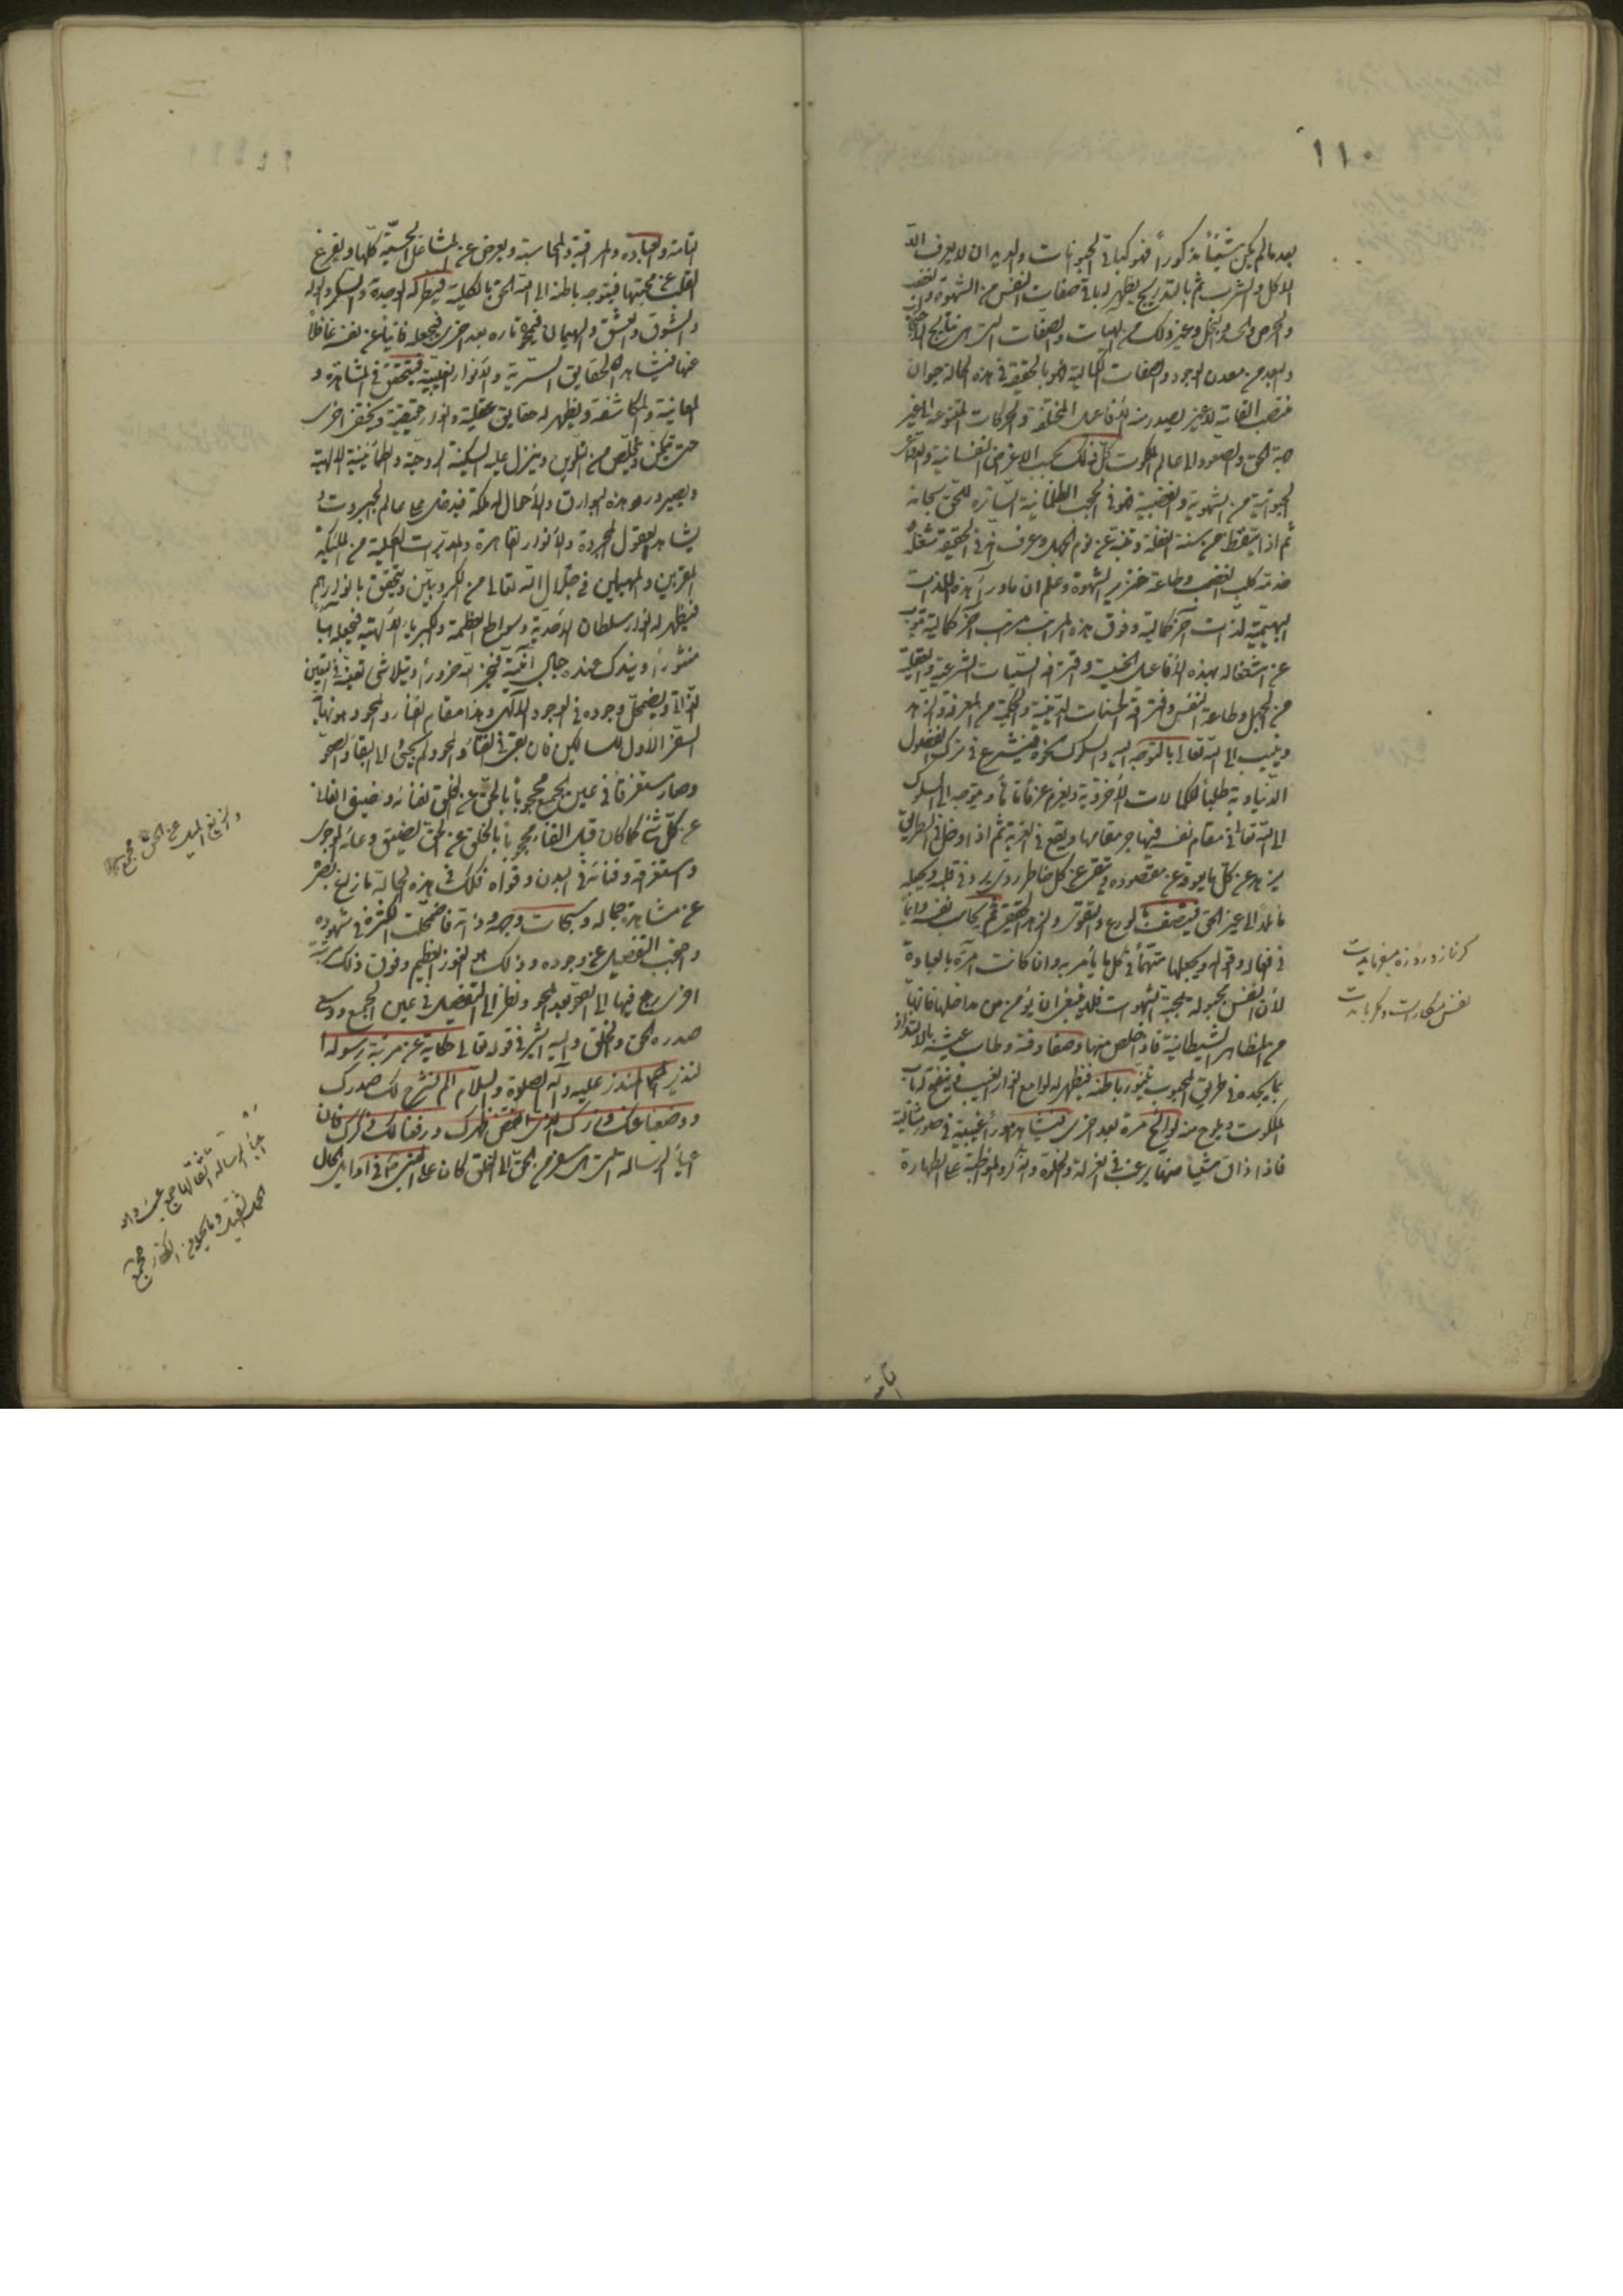 ١١٠
بعد ما لم يكن شيئاً مذكوراً فهو كباقي الحيوانات والديدان لا يعرف الا
الاكل والشرب ثم بالتدريج يظهر له باقي صفات النفس من الشهوة والغضب
والحرص والحسد والبخل وغير ذلك من الهيات والصفات التي هي نتايج الاحتجاب
والبعد من معدن الوجود والصفات الكمالية فهو بالحقيقة في هذه الحالة حيوان
منتصب القامة لا غير يصدر منه الأفاعيل المختلفة والحركات المتنوعة الى غير
جهة الحق والصعود الى عالم الملكوت كل ذلك بحسب الاغراض النفسانية والقوى
الحيوانية من الشهوية والغضبية فهو في الحجب الظلمانية الساترة للحق سبحانه
ثم اذا تيقظ من سنة الغفلة وتنبه عن نوم الجهل وعرف انه في الحقيقة شغله
خدمة كلب الغضب وطاعة خنزير الشهوة وعلم ان ماوراء هذه اللذات
البهيمية لذات آخر كمالية وفوق هذه المراتب مراتب آخر كمالية فيتوب
عن اشتغاله بهذه الأفاعيل الخسيسة وقترفه السيئات الشرعية والعقلية
من الجهل وطاعة النفس وقترفه الحسنات الدينية والحكمية من المعرفة والزهد
وينيب الى الله تعالى بالتوجه اليه والسلوك نحوه فيشرع في ترك الفضول
الدنياوية طلباً للكمالات الأخروية ويعزم عزماً تاماً ويتوجه الى السلوك
الى الله تعالى في مقام نفسه فيهاجر مقامها ويقع في الغربة ثم اذا دخل في الطريق
يزهد عن كل ما يعوقه عن مقصوده ويتقي عن كل خاطر ردي يرد في قلبه ويجعله
مائلاً الى غير الحق فيتصف بالورع والتقوى والزهد الحقيقي ثم يحاسب نفسه دائماً
في افعاله واقواله ويجعلها متهماً في كل ما يأمر به وان كانت آمرة بالعبادة
لأن النفس مجبولة بمحبة الشهوات فلا ينبغي ان يؤمن من مداخلها فانها
من المظاهر الشيطانية فاذا خلص منها وصفا وقته وطاب عيشه بالالتذاذ
بما يجده في طريق المحبوب يتنور باطنه فيظهر له لوامع انوار الغيب وينفتح له باب
الملكوت ويلوح منه لوايح مرة بعد اخرى فيشاهد اموراً غيبية في صور مثالية
فاذا ذاق شيئاً منها يرغب في العزلة والخلوة والذكر والمواظبة على الطهارة
كر نماز و روزه ميفرمايدت
نفس مكارست
التامة
التامة والعبادة والمراقبة والمحاسبة ويعرض عن المشاغل الحسية كلها ويفرغ
القلب عن محبتها فيتوجه باطنه الى الله الحق بالكلية فيظهر له الوجد والسكر والوله
والشوق والعشق والهيمان فيمحوه تارة بعد اخرى فيجعله فانياً عن نفسه غافلاً
عنها فيشاهد الحقايق السرية والأنوار الغيبية فيتحقق في المشاهدة و
المعاينة والمكاشفة ويظهر له حقايق عقلية وانوار حقيقية ويختفي اخرى
حتى يتمكن ويتخلص من التلوين وينزل عليه السكينة الروحية والطمأنينة الالهية
ويصير ورود هذه البوارق والأحوال له ملكة فيدخل عالم الجبروت و
يشاهد العقول المجردة والأنوار القاهرة والمدبرات الكلية من الملئكة
المقربين والمهيمين في جلال الله تعالى من الكروبيين ويتحقق بانوارهم
فيظهر له انوار سلطان الأحدية وسواطع العظمة والكبرياء الالهية فيجعله هباءً
منثوراً ويندك عنده جبال انيته فيخر لله خروراً ويتلاشى تعينه في التعين
الذاتي ويضمحل وجوده في الوجود الالهي وهذا مقام الفناء والمحو وهو نهاية
السفر الأول للسالكين فان بقي في الفناء والمحو ولم يجئ الى البقاء والصحو
وصار مستغرقاً في عين الجمع محجوباً بالحق عن الخلق لفنائه وضيق
عن كل شيء كما كان قبل الفناء محجوباً بالخلق عن الحق لضيق وعائه الوجودي
واستغراقه وفنائه في البدن وقواه فكذلك في هذه الحالة ما زاغ بصره
عن مشاهدة جماله وسبحات وجهه وذاته فاضمحلت الكثرة في شهوده
واحتجب التفصيل عن وجوده وذلك هو الفوز العظيم وفوق ذلك مرتبة
اخرى يرجع فيها الى الصحو بعد المحو ونظر الى التفصيل في عين الجمع ووسع
صدره الحق والخلق واليه اشير في قوله تعالى حكاية عن مرتبة رسوله
النذير المنذر عليه وآله الصلوة والسلام الم نشرح لك صدرك
ووضعنا عنك وزرك الذي انقض ظهرك ورفعنا لك ذكرك فان
اعباء الرسالة التي هي السفر من الحق الى الخلق كان على النبي ص في اوايل الحال
والزيغ الميل عن الحق مجمع
اعباء الرسالة اثقالها جمع عبء
الحمل الثقيل مجمع